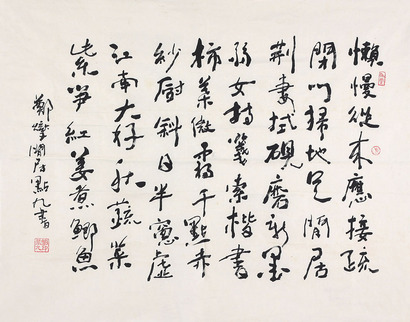 懶慢從来應接疏
閉門掃地足閒居
荊妻拭硯磨新墨
弱女持箋索楷書
柿葉微霜千點赤
紗厨斜日半窗虚
江南大好秋蔬菜
紫笋紅姜煮鯽魚
鄭燮閒居點九書